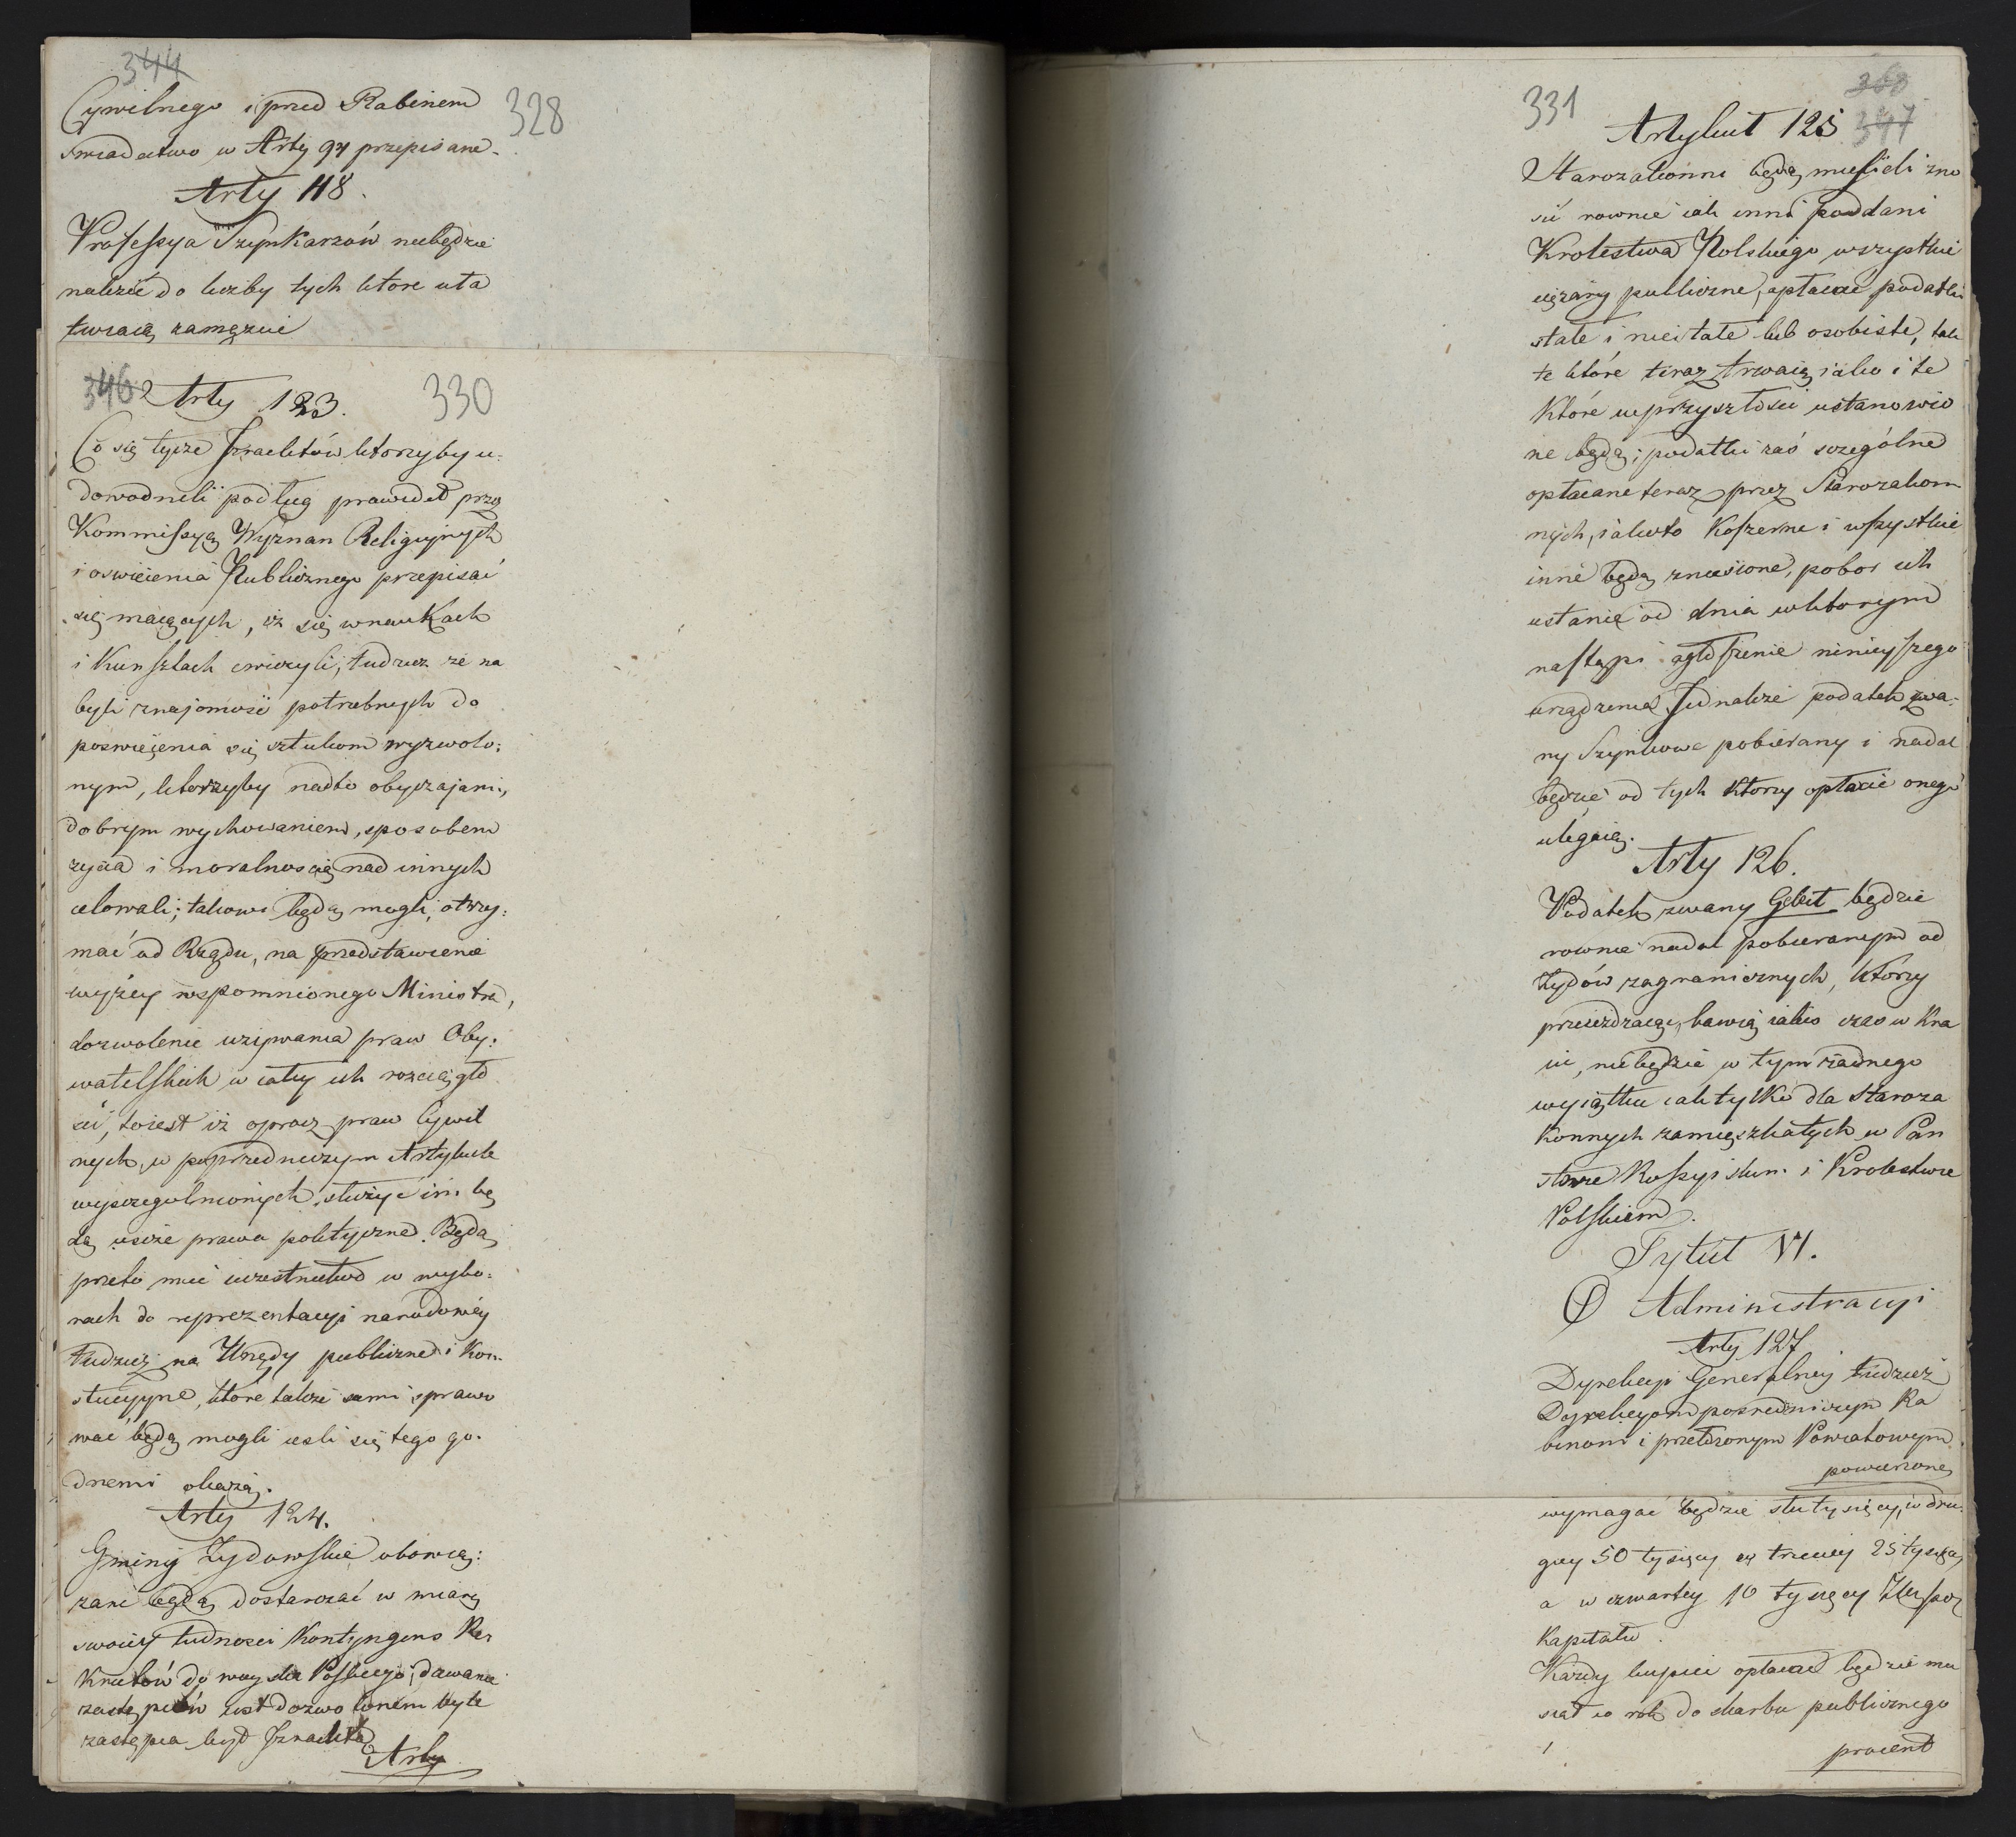 344
328
Cywilnego i przed Rabinem
swiadectwo w Arty 97 przepisane.
Arty 118.
Professya Szynkarzów niebędzie
należeć do liczby tych ktore uła
twiaią zamęzcie
346
330
Arty 123.
Co się tycze Izraelitów ktorzyby u.
dowodnili podług prawideł przez
Kommissyą Wyznan Religijnych
i oswiecenia Publicznego przepisać
się maiących, iż się w naukach
i Kunsztach cwiczyli, tudzież że na
byli znajomości potrzebnych do
poswięcenia się sztukom wyzwolo:
nym, ktorzyby nadto obyczajami,
dobrym wychowaniem, sposobem
zycia i moralnoscią nad innych
celowali; takowi będą mogli, otrzy:
mać od Rządu, na przedstawienie
wyżey wspomnionego Ministra,
dozwolenie używania praw Oby:
watelskich w całey ich rozciągło
sci, toiest iż oprocz praw Cywil
nych, w poprzedniczym Artykule
wyszczegulnionych, służyć im bę
dą ieszcze prawa polityczne. Będą
przeto mieć uczestnictwo w wybo:
rach do reprezentacyi narodowéy
tudzież na Urzędy publiczne i Kon
stucyyne, ktore takze sami sprawo
wać będą mogli iesli się tego go.
dnemi okażą.
Arty 124.
Gminy Zydowskie obowią:
zane będą dostarczać w miarę
swoiey ludnosci Kontyngens Re
Krutów do woyska Polskiego; dawanie
zastępców iest dozwolonem byle
zastępca był Izraelita
Arty
331
360
347
Artykuł 125
Starozakonni będą musieli zno
sić rownie iak inni poddani
Krolestwa Polskiego wszystkie
ciężary publiczne, opłacać podatki
stałe i niestałe lub osobiste, tak
te które teraz trwaią iako i te
Które w przyszłosci ustanowio
ne będą; podatki zaś szczególne
opłacane teraz przez Starozakon
nych, iakoto Koszerne i wszystkie
inne będą zniesione, pobor ich
ustanie od dnia w ktorym
nastąpi ogłoszenie ninieyszego
urządzenia Jednakże podatek zwa:
ny Szynkowe pobierany i nadal
będzie od tych Ktorzy opłacie onego
ulegaią.
Arty 126.
Podatek zwany Geleit będzie
rownie nadal pobieranym od
Żydów zagranicznych, którzy
przeieżdzaiąc, bawią iakis czas w Kra
iu, niebędzie w tym żadnego
wyiątku iak tylko dla Staroza
Konnych zamieszkałych w Pań
stwie Rossyiskim i Krolestwie
Polskiem.
Tytuł VI.
O Administracyi
Arty 127
Dyrekcyi Generalney tudzież
Dyrekcyom posredniczym Ra
binom i przełożonym Powiatowym
powierzone
wymagać będzie stu tysięcy, w dru.
giey 50 tysięcy w trzeciey 25 tysięcy
a w czwartey 10 tysięcy
Kapitału.
Każdy kupiec opłacać będzie mu
siał co rok do skarbu publicznego
procent